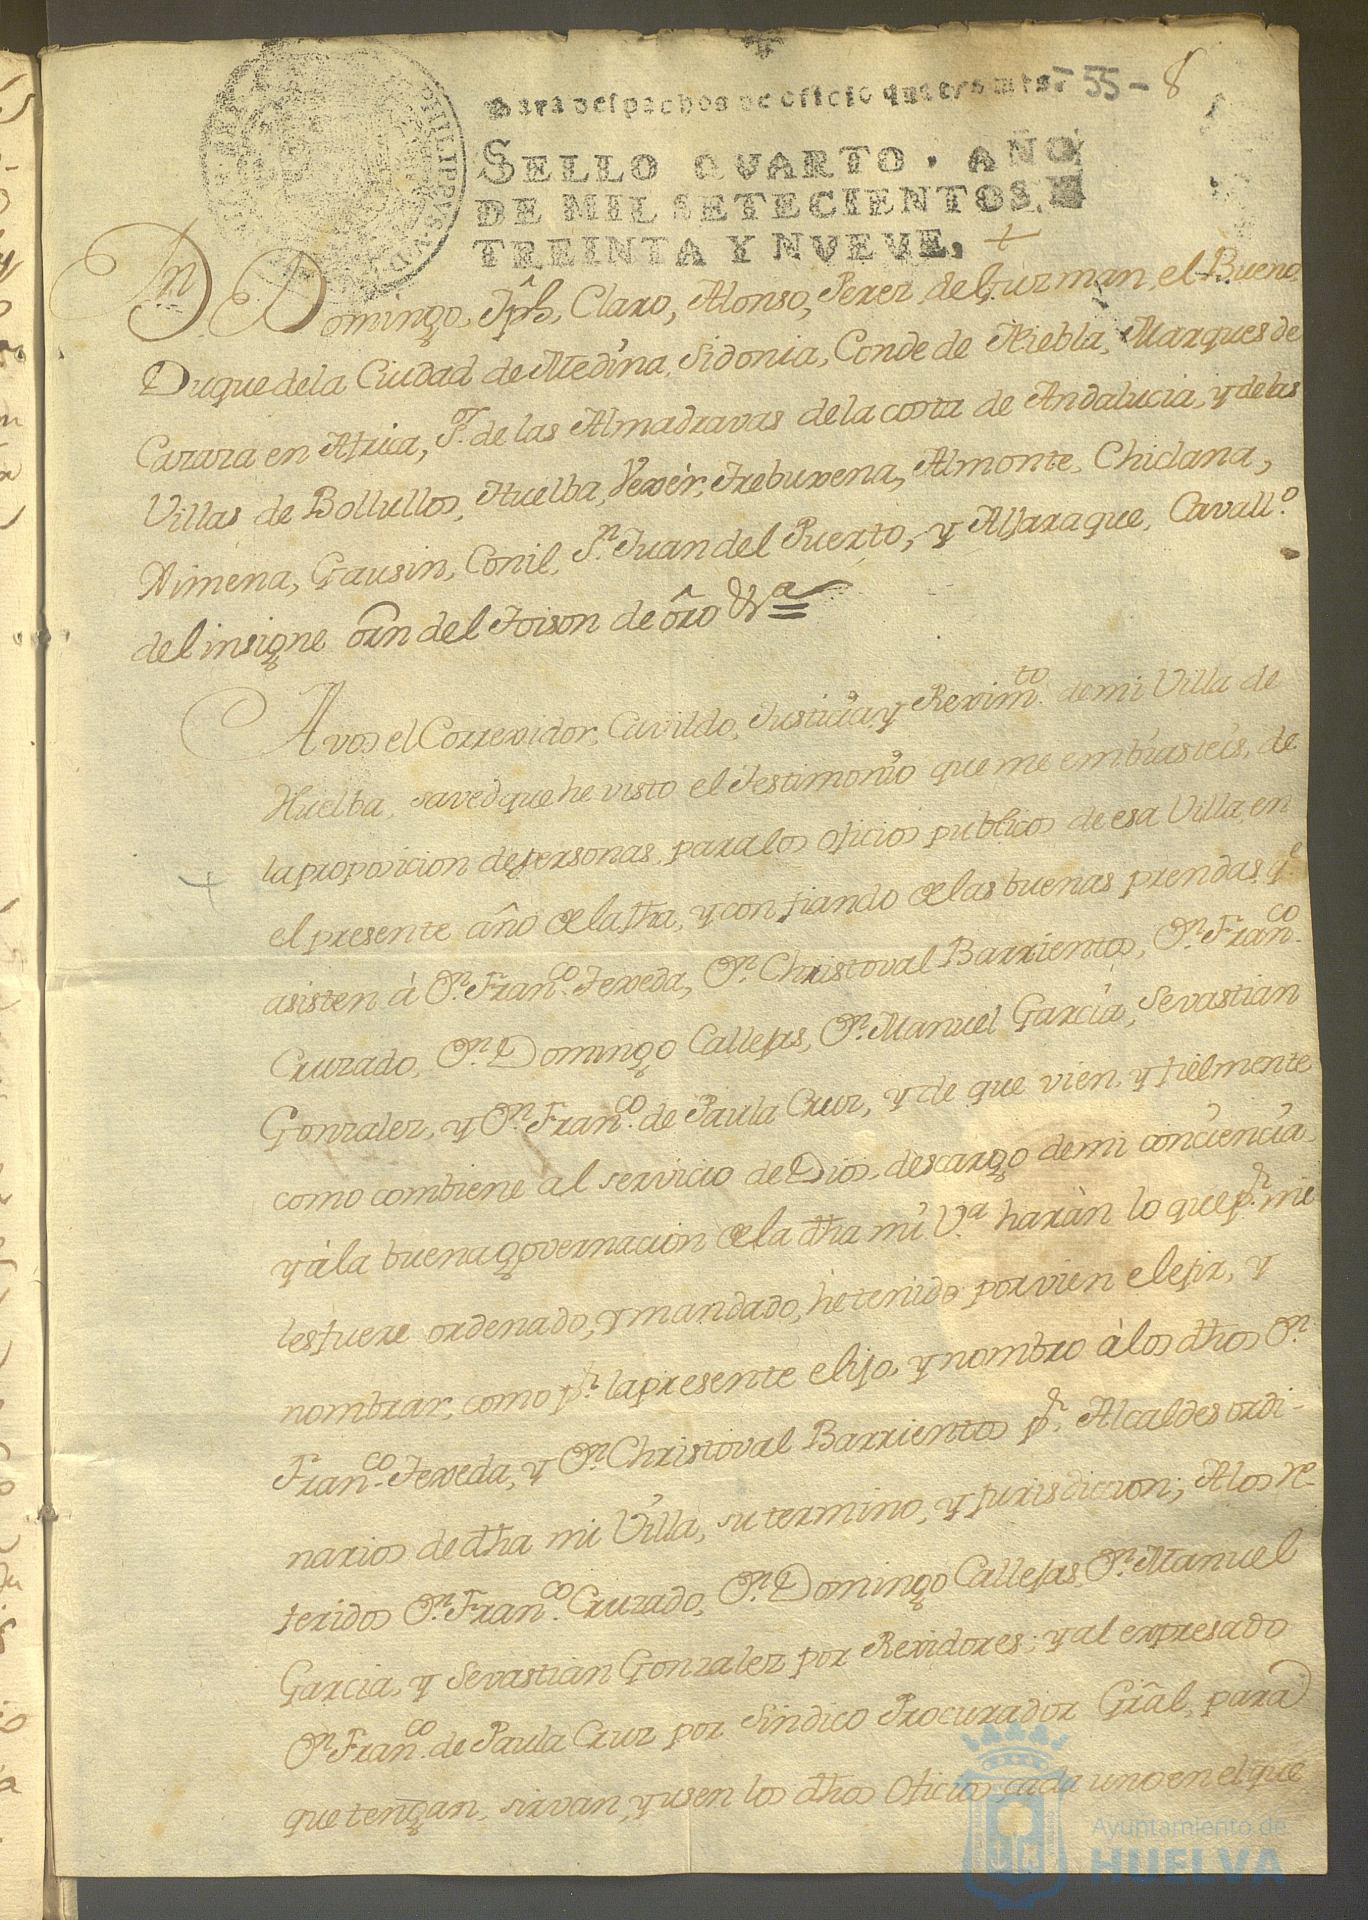 Para despachos de oficio quatro mrs. 55 - 8
SELLO QVARTO, AÑO
DE MIL SETECIENTOS Y
TREINTA Y NVEVE.
PHILIPPVS V D
Dn Domingo, Jph, Claro, Alonso, Perez de Guzman, el Bueno,
Duque de la Ciudad de Medina Sidonia, Conde de Niebla, Marques de
Cazaza en Africa, Sor. de las Almadravas de la costa de Andalucia, y de las
Villas de Bollullos, Huelba, Vexèr, Trebuxena, Almonte, Chiclana,
Ximena, Gausin, Conil, Sn. Juan del Puerto, y Alfaraque, Cavallo.
del insigne orn del Toison de oro &a
A vos el Correxidor, Cavildo, Justicia, y Reximto. de mi Villa de
Huelba, saved que he visto el Testimonio que me embiasteis, de
la proposicion de personas para los oficios publicos de esa Villa, en
el presente año de la fha, y confiando de las buenas prendas qe.
asisten à Dn. Franco. Texeda, Dn. Christoval Barrientos, Dn. Franco.
Cruzado, Dn. Domingo Callejas, Dn. Manuel Garcia, Sevastian
Gonzalez, y Dn. Franco. de Paula Cruz, y de que vien, y fielmente
como combiene al servicio de Dios, descargo de mi conciencia,
y à la buena governacion de la dha mi Va. haràn lo que pr. mi
les fuere ordenado, y mandado, he tenido por vien elejir, y
nombrar, como pr. la presente elijo, y nombro à los dhos Dn.
Franco. Texeda, y Dn. Christoval Barrientos pr. Alcaldes ordi-
narios de dha mi Villa, su termino, y jurisdiccion; A los re-
feridos Dn. Franco. Cruzado, Dn. Domingo Callejas, Dn. Manuel
Garcia, y Sevastian Gonzalez por Rexidores; y al expresado
Dn. Franco. de Paula Cruz por Sindico Procurador Gral, para
que tengan, sirvan, y usen los dhos Oficios cada uno en el que
Ayuntamiento de
HUELVA